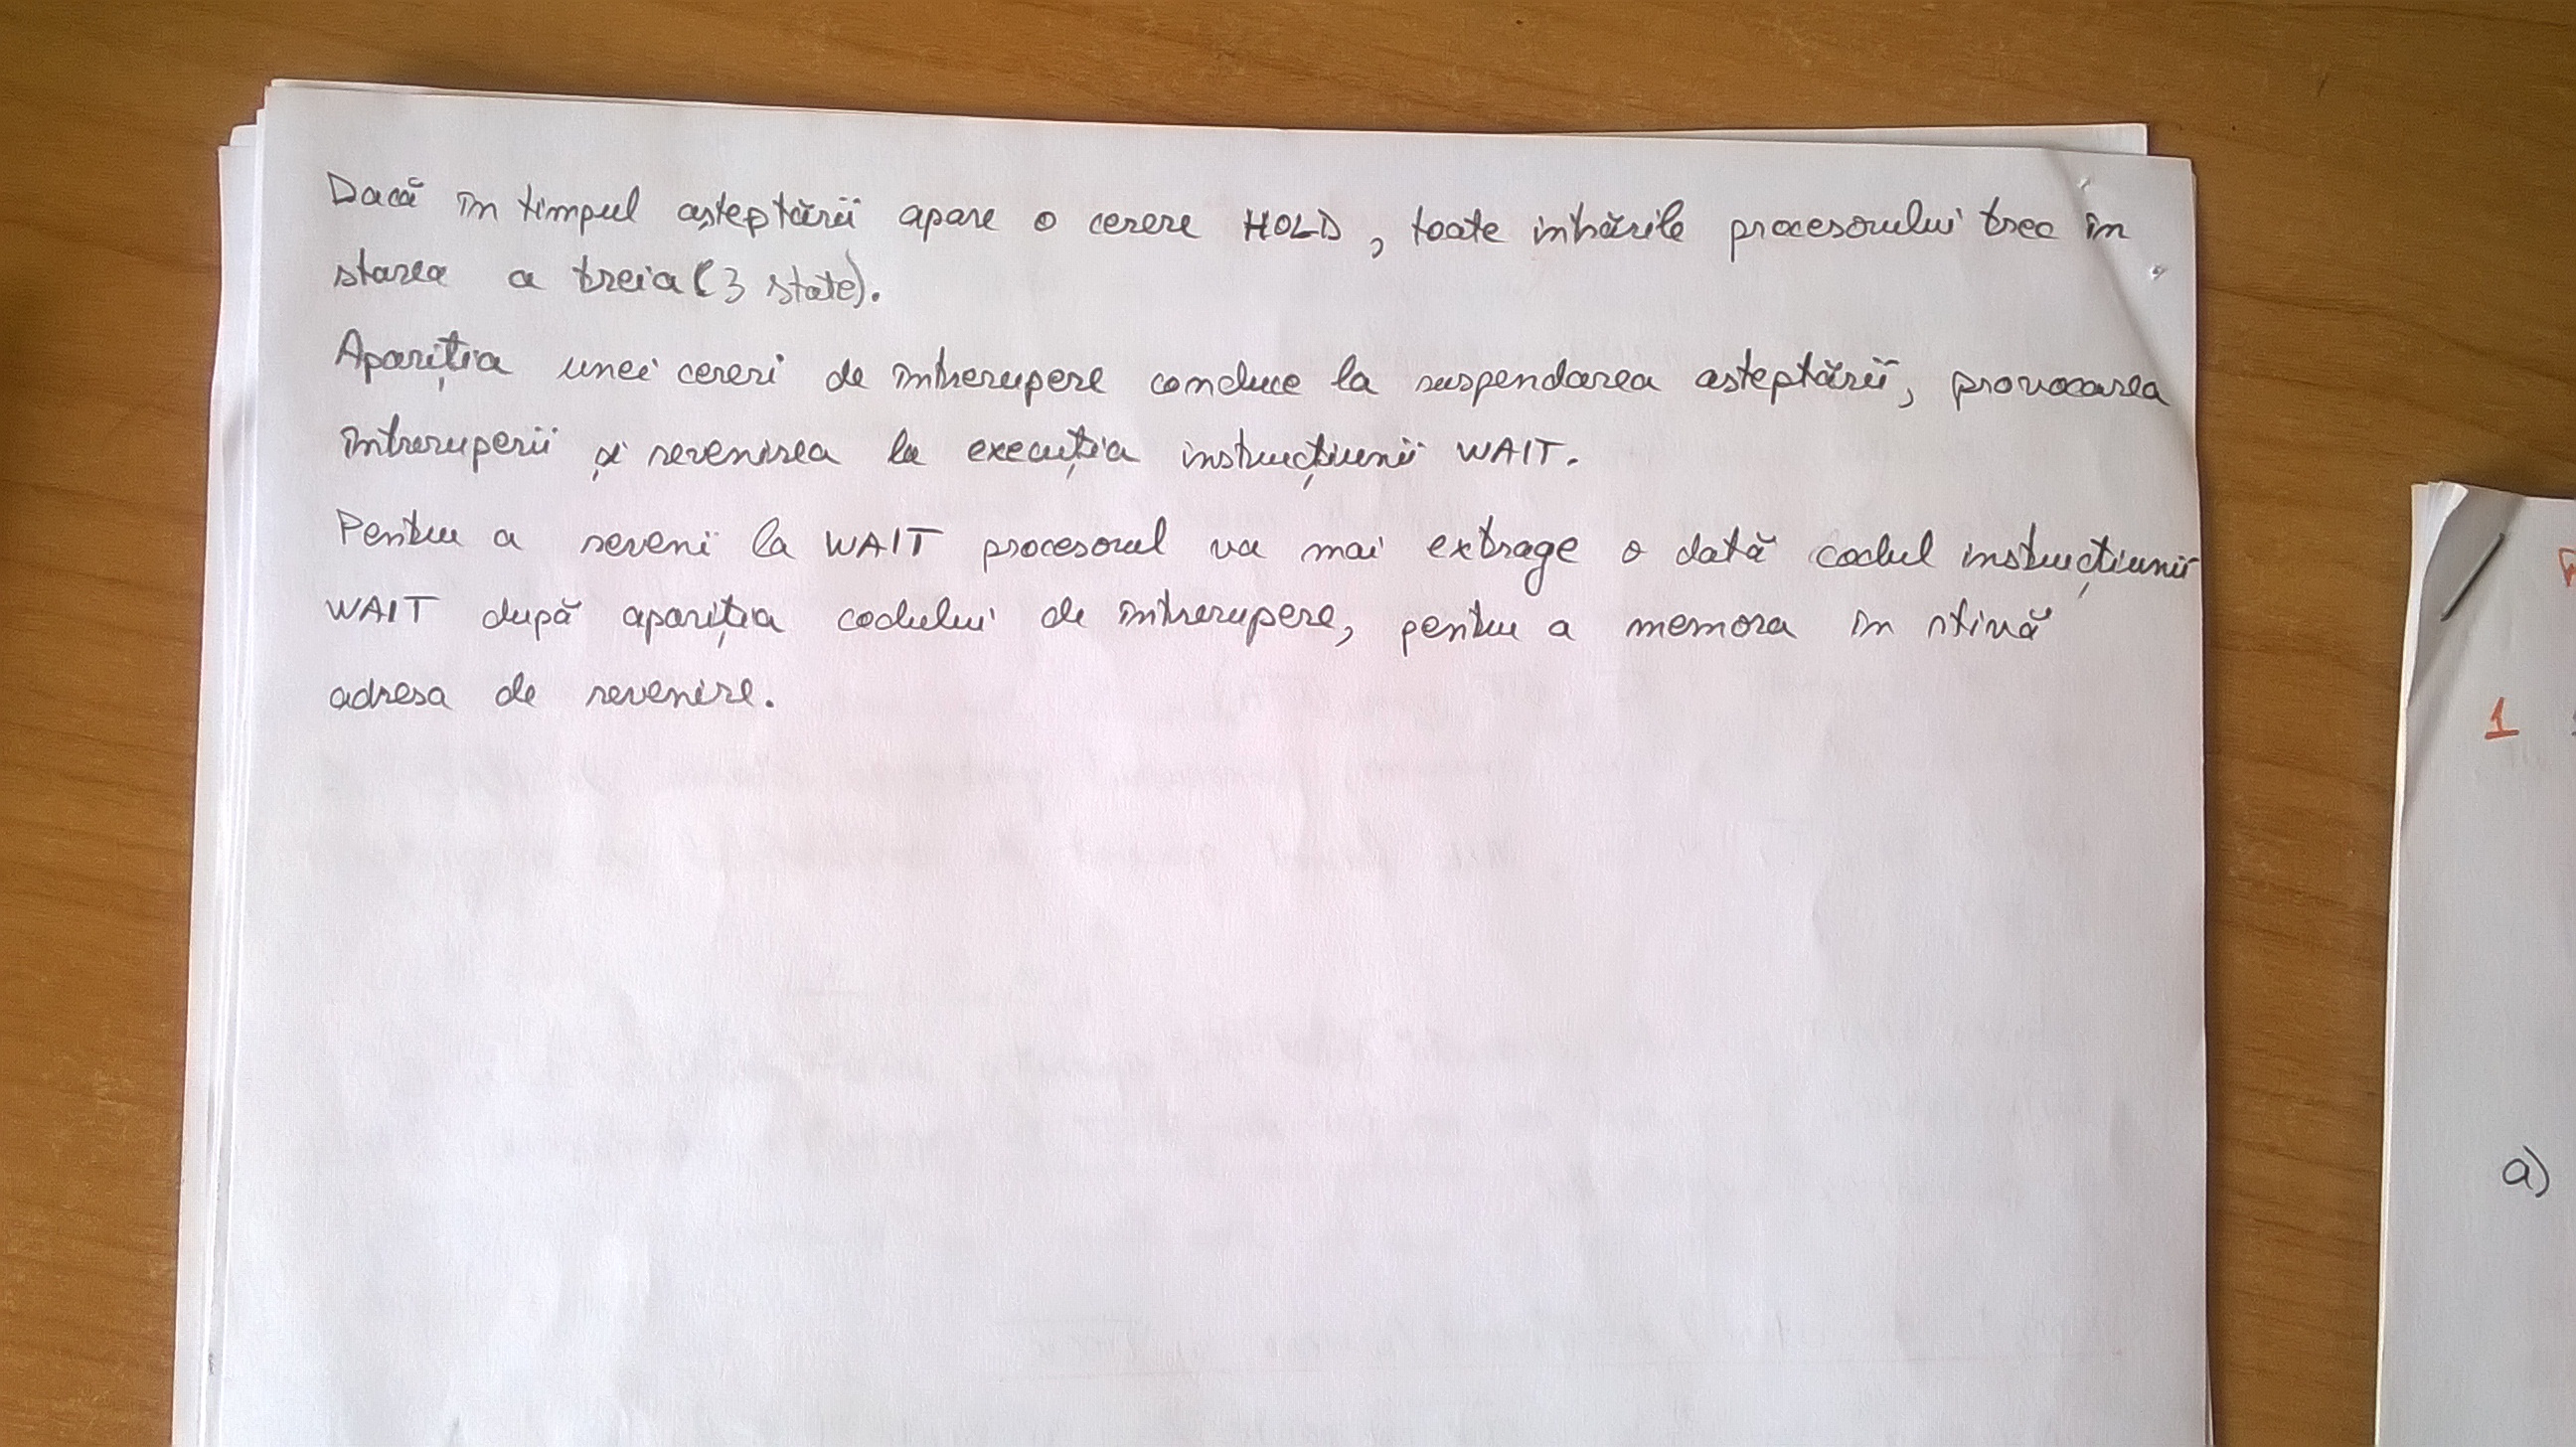 Dacă în timpul așteptării apare o cerere HOLD, toate intrările procesorului trec în
starea a treia (3 state).
Apariția unei cereri de întrerupere conduce la suspendarea așteptării, provocarea
întreruperii și revenirea la execuția instrucțiunii WAIT.
Pentru a reveni la WAIT procesorul va mai extrage o dată codul instrucțiunii
WAIT după apariția codului de întrerupere, pentru a memora în stivă
adresa de revenire.
1
a)